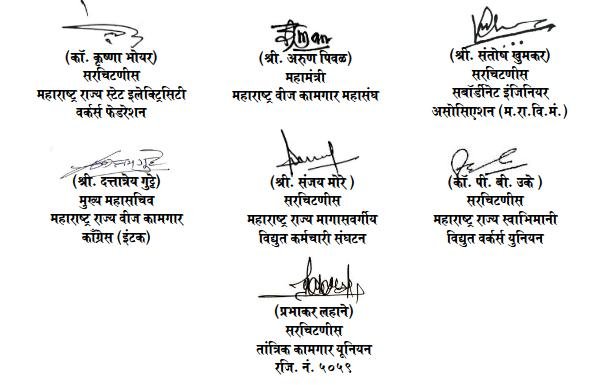 (कॉ. कृष्णा भोयर)
सरचिटणीस
महाराष्ट्र राज्य स्टेट इलेक्ट्रिसिटी
वर्कर्स फेडरेशन
(श्री. अरुण पिवळ)
महामंत्री
महाराष्ट्र वीज कामगार महासंघ
(श्री. संतोष खुमकर)
सरचिटणीस
सबॉर्डीनेट इंजिनियर
असोसिएशन (म.रा.वि.मं.)
(श्री. दत्तात्रेय गुट्टे)
मुख्य महासचिव
महाराष्ट्र राज्य वीज कामगार
काँग्रेस (इंटक)
(श्री. संजय मोरे)
सरचिटणीस
महाराष्ट्र राज्य मागासवर्गीय
विद्युत कर्मचारी संघटन
(कॉ. पी. बी. उके )
सरचिटणीस
महाराष्ट्र राज्य स्वाभिमानी
विद्युत वर्कर्स युनियन
(प्रभाकर लहाने)
सरचिटणीस
तांत्रिक कामगार यूनियन
रजि. नं. ५०५९